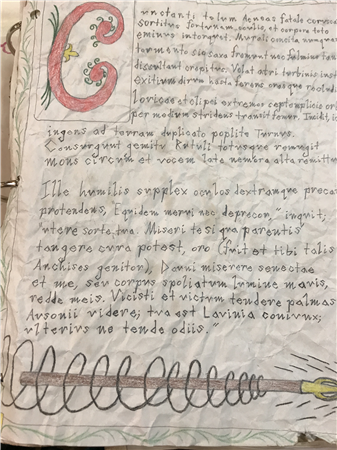 C
unctanti telum Aeneas fatale corusca
sortitus fortunam oculis, et corpore toto
eminus intorquet. Murali concita numqua
tormento sic saxa fremunt nec fulmine tan
dissultant crepitus. Volat atri turbinis inst
exitium dirum hasta ferens orasque reclud
loricae et clipei extremos septemplicis orb
per medium stridens transit femur. Incidit, ic
ingens ad terram duplicato poplite Turnus.
Consurgunt gemitu Rutuli totusque remugit
mons circum et vocem late nemora alta remittun
Ille humilis supplex oculos dextramque precan
protendens, "Equidem merui nec deprecor," inquit;
"utere sorte tua. Miseri te si qua parentis
tangere cura potest, oro (fuit et tibi talis
Anchises genitor), Dauni miserere senectae
et me, seu corpus spoliatum lumine mavis,
redde meis. Vicisti et victum tendere palmas
Ausonii videre; tua est Lavinia coniunx;
ulterius ne tende odiis."